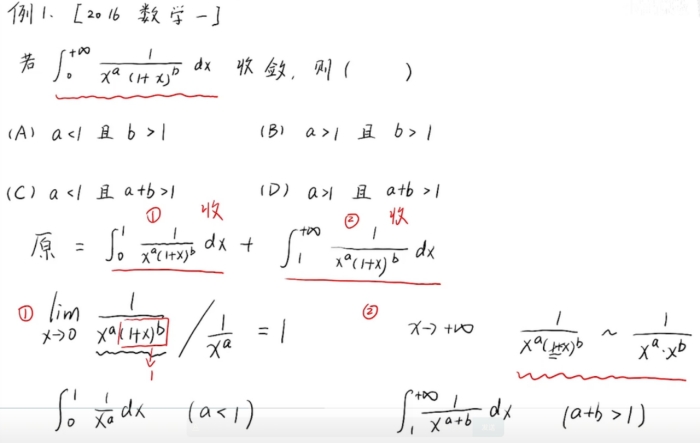 例1. [2016 数学一]
若 ∫₀^{+∞} 1/(x^a (1+x)^b) dx 收敛, 则 ( )
(A) a<1 且 b>1 (B) a>1 且 b>1
(C) a<1 且 a+b>1 (D) a>1 且 a+b>1
① 收 ② 收
原 = ∫₀^1 1/(x^a(1+x)^b) dx + ∫₁^{+∞} 1/(x^a(1+x)^b) dx
① lim_{x→0} 1/(x^a(1+x)^b) / 1/x^a = 1 ② x→+∞ 1/(x^a(1+x)^b) ~ 1/(x^a·x^b)
1
∫₀^1 1/x^a dx (a<1) ∫₁^{+∞} 1/x^{a+b} dx (a+b>1)